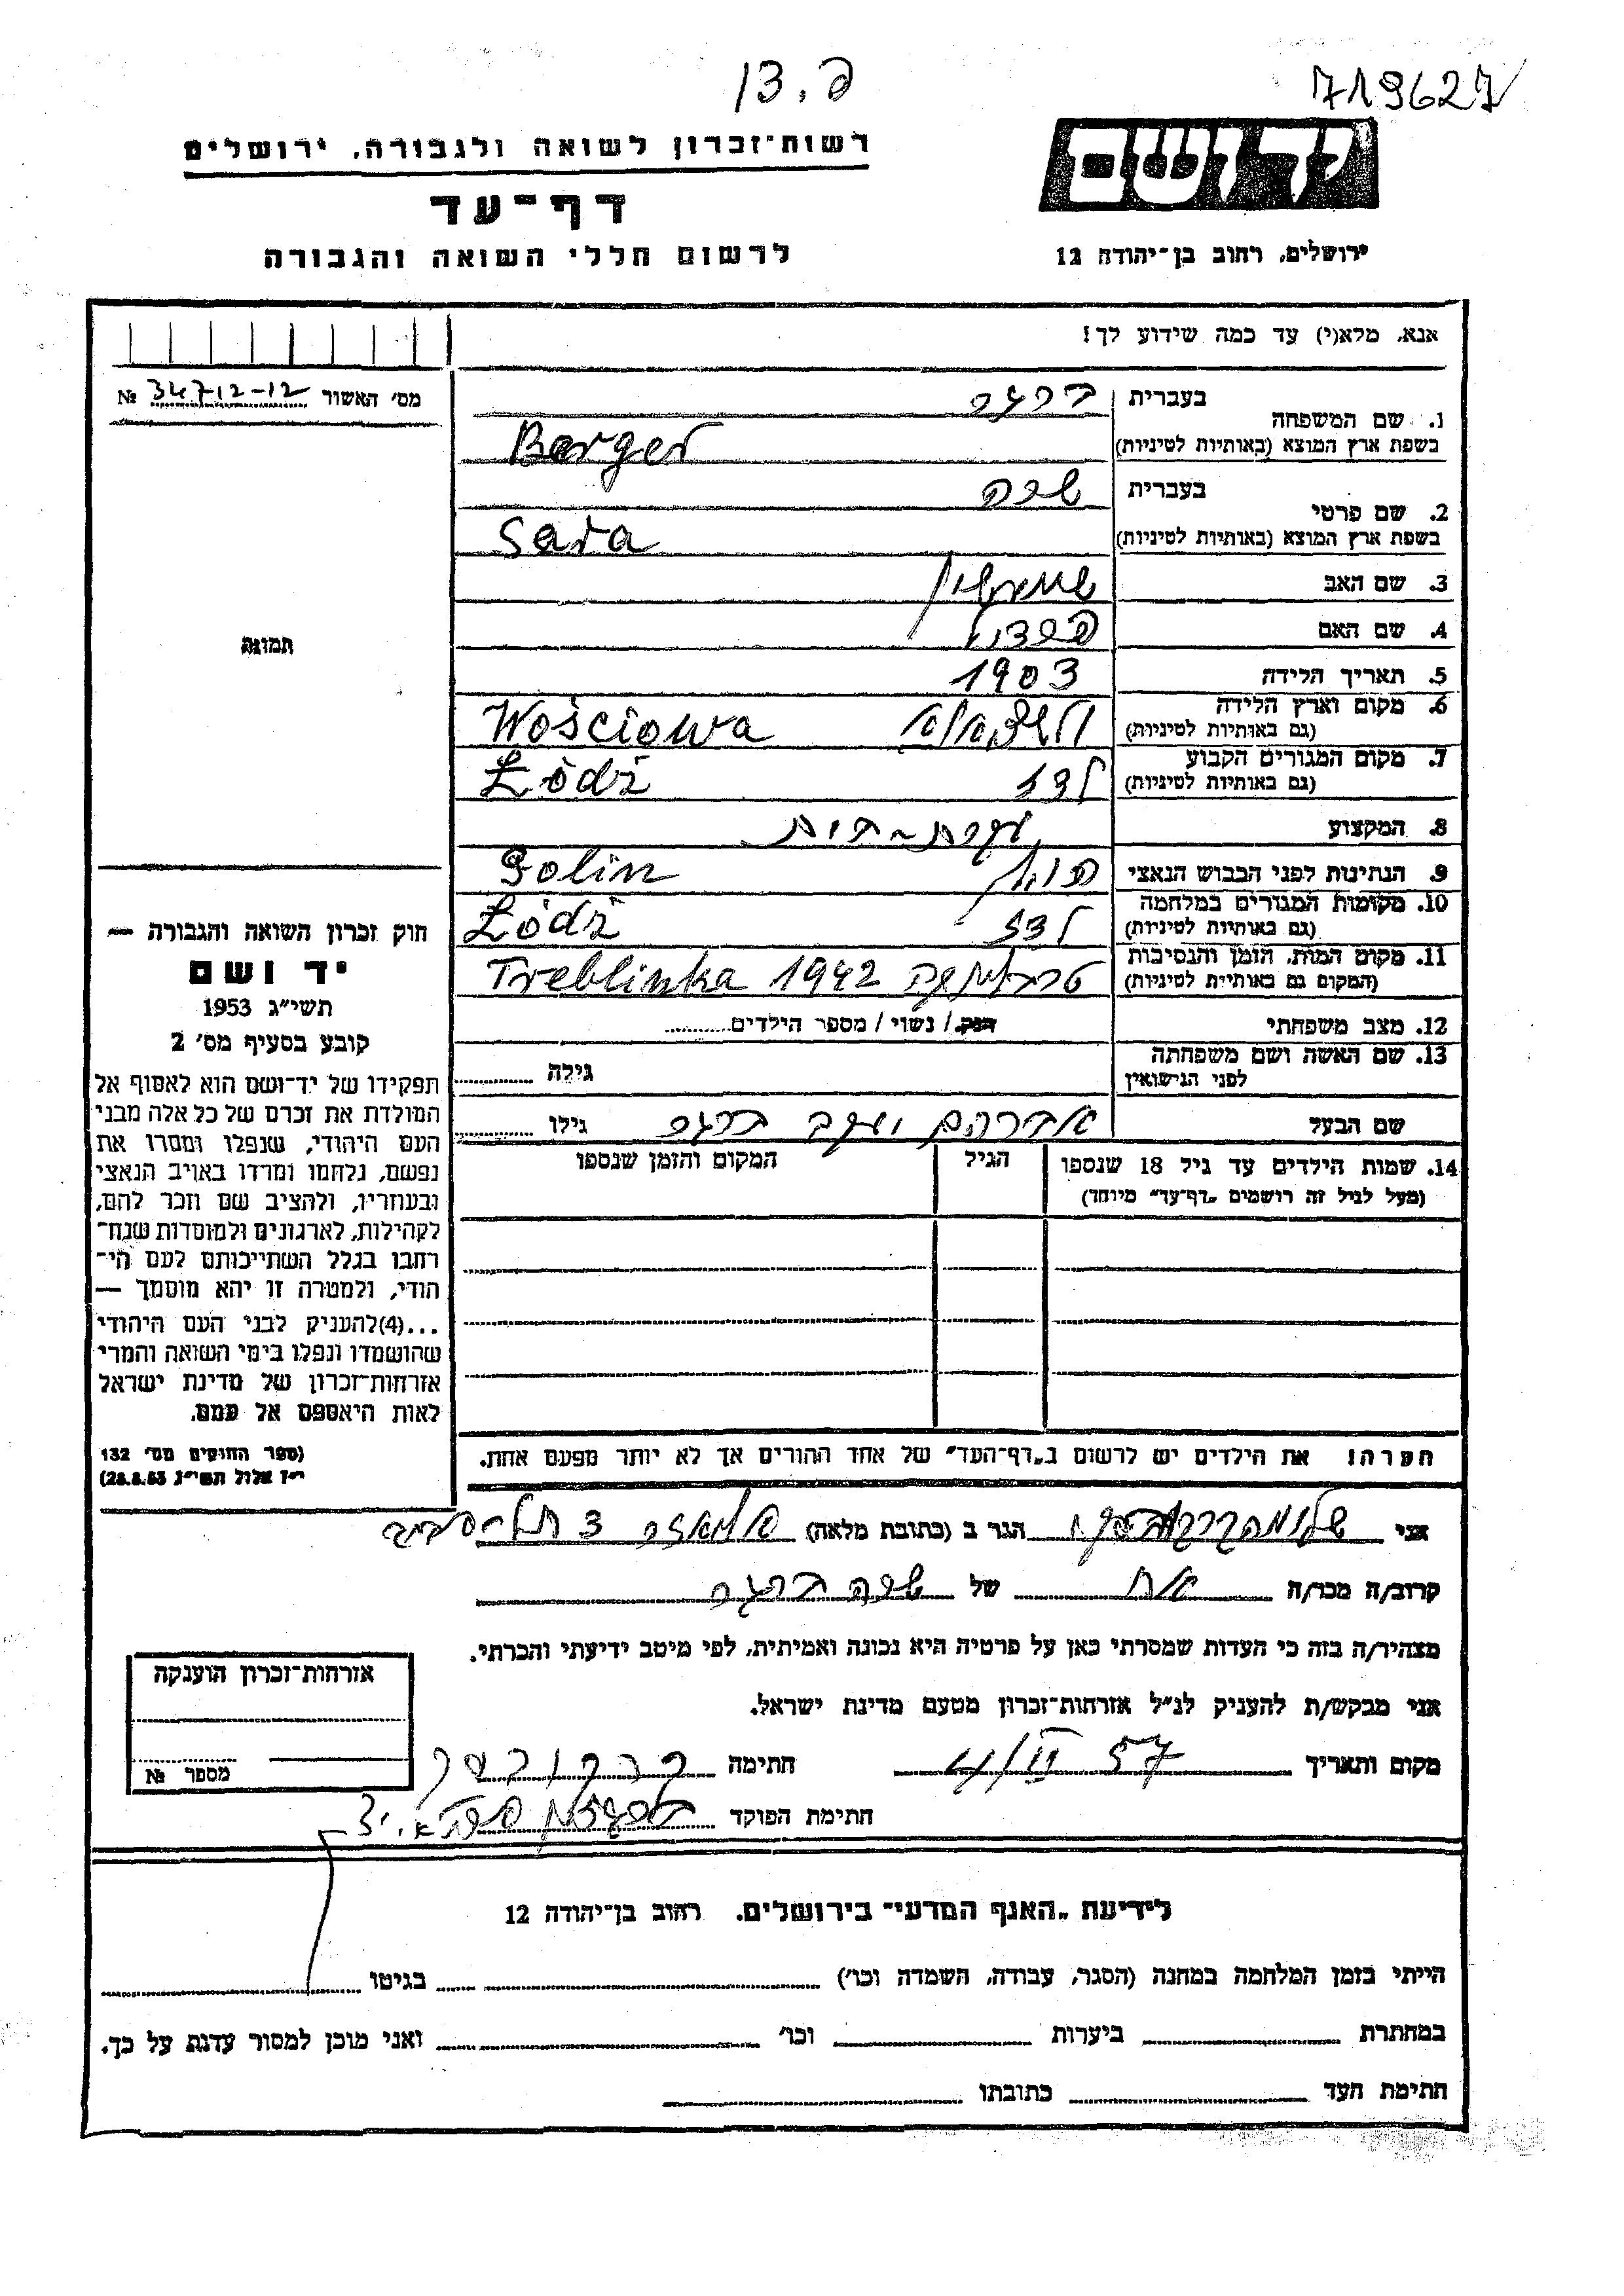 13.פ
719627
יד ושם
רשות־זכרון לשואה ולגבורה, ירושלים
דף־עד
לרשום חללי השואה והגבורה
ירושלים, רחוב בן־יהודה 12
אנא, מלא(י) עד כמה שידוע לך!
מס׳ האשור № 34712-12
1. שם המשפחה
בעברית ברגר
בשפת ארץ המוצא (באותיות לטיניות) Berger
2. שם פרטי
בעברית שרה
בשפת ארץ המוצא (באותיות לטיניות) Sara
3. שם האב
4. שם האם
5. תאריך הלידה 1903
6. מקום וארץ הלידה
(גם באותיות לטיניות) Wośćiowa
7. מקום המגורים הקבוע
(גם באותיות לטיניות) לודז Łódź
8. המקצוע עקרת-בית
9. הנתינות לפני הכבוש הנאצי פולין Polin
10. מקומות המגורים במלחמה
(גם באותיות לטיניות) לודז Łódź
11. מקום המות, הזמן והנסיבות
(המקום גם באותיות לטיניות) טרבלינקה Treblinka 1942
12. מצב משפחתי רווק / נשוי / מספר הילדים
13. שם האשה ושם משפחתה
לפני הנישואין גילה
שם הבעל אברהם יעקב ברגר גילו
14. שמות הילדים עד גיל 18 שנספו
(מעל לגיל זה רושמים „דף־עד״ מיוחד)
הגיל
המקום והזמן שנספו
הערה! את הילדים יש לרשום ב„דף־העד״ של אחד ההורים אך לא יותר מפעם אחת.
תמונה
חוק זכרון השואה והגבורה —
יד ושם
תשי״ג 1953
קובע בסעיף מס׳ 2
תפקידו של יד־ושם הוא לאסוף אל
המולדת את זכרם של כל אלה מבני
העם היהודי, שנפלו ומסרו את
נפשם, נלחמו ומרדו באויב הנאצי
ובעוזריו, ולהציב שם וזכר להם,
לקהילות, לארגונים ולמוסדות שנח־
רבו בגלל השתייכותם לעם הי־
הודי, ולמטרה זו יהא מוסמך —
...(4)להעניק לבני העם היהודי
שהושמדו ונפלו בימי השואה והמרי
אזרחות־זכרון של מדינת ישראל
לאות היאספם אל עמם.
(ספר החוקים מס׳ 132
י״ז אלול תשי״ג 28.8.53)
אני הגר ב (כתובת מלאה) 3 תל-אביב
קרוב/ה מכר/ה אח של שרה ברגר
מצהיר/ה בזה כי העדות שמסרתי כאן על פרטיה היא נכונה ואמיתית, לפי מיטב ידיעתי והכרתי.
אני מבקש/ת להעניק לנ״ל אזרחות־זכרון מטעם מדינת ישראל.
מקום ותאריך 4/II 57 חתימה
חתימת הפוקד
אזרחות־זכרון הוענקה
מספר №
לידיעת „האגף המדעי״ בירושלים, רחוב בן־יהודה 12
הייתי בזמן המלחמה במחנה (הסגר, עבודה, השמדה וכו׳) בגיטו
במחתרת ביערות וכו׳ ואני מוכן למסור עדות על כך.
חתימת העד כתובתו